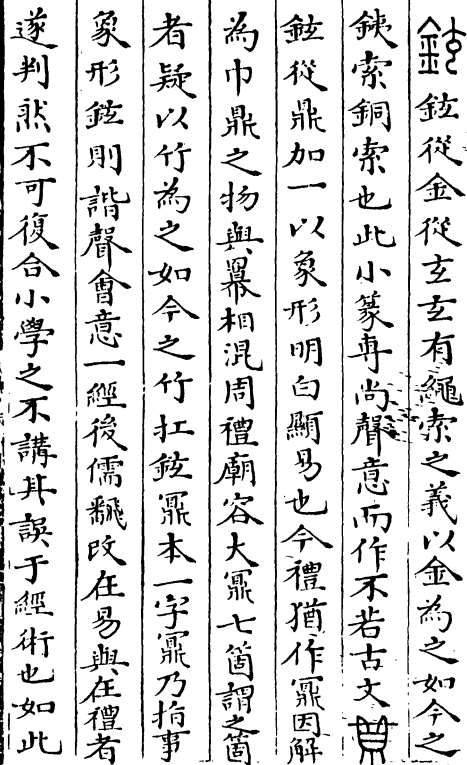 鉉從金從玄玄有繩索之義以金為之如今之
鉄索銅索也此小篆專尚聲意而作不若古文
鉉從鼎加一以象形明白顯易也今禮猶作鼏因解
為巾鼎之物與冪相混周禮廟容大鼏七箇謂之箇
者疑以竹為之如今之竹扛鉉鼏本一字鼏乃指事
象形鉉則諧聲會意一經後儒飜改在易與在禮者
遂判然不可復合小學之不講其誤于經術也如此